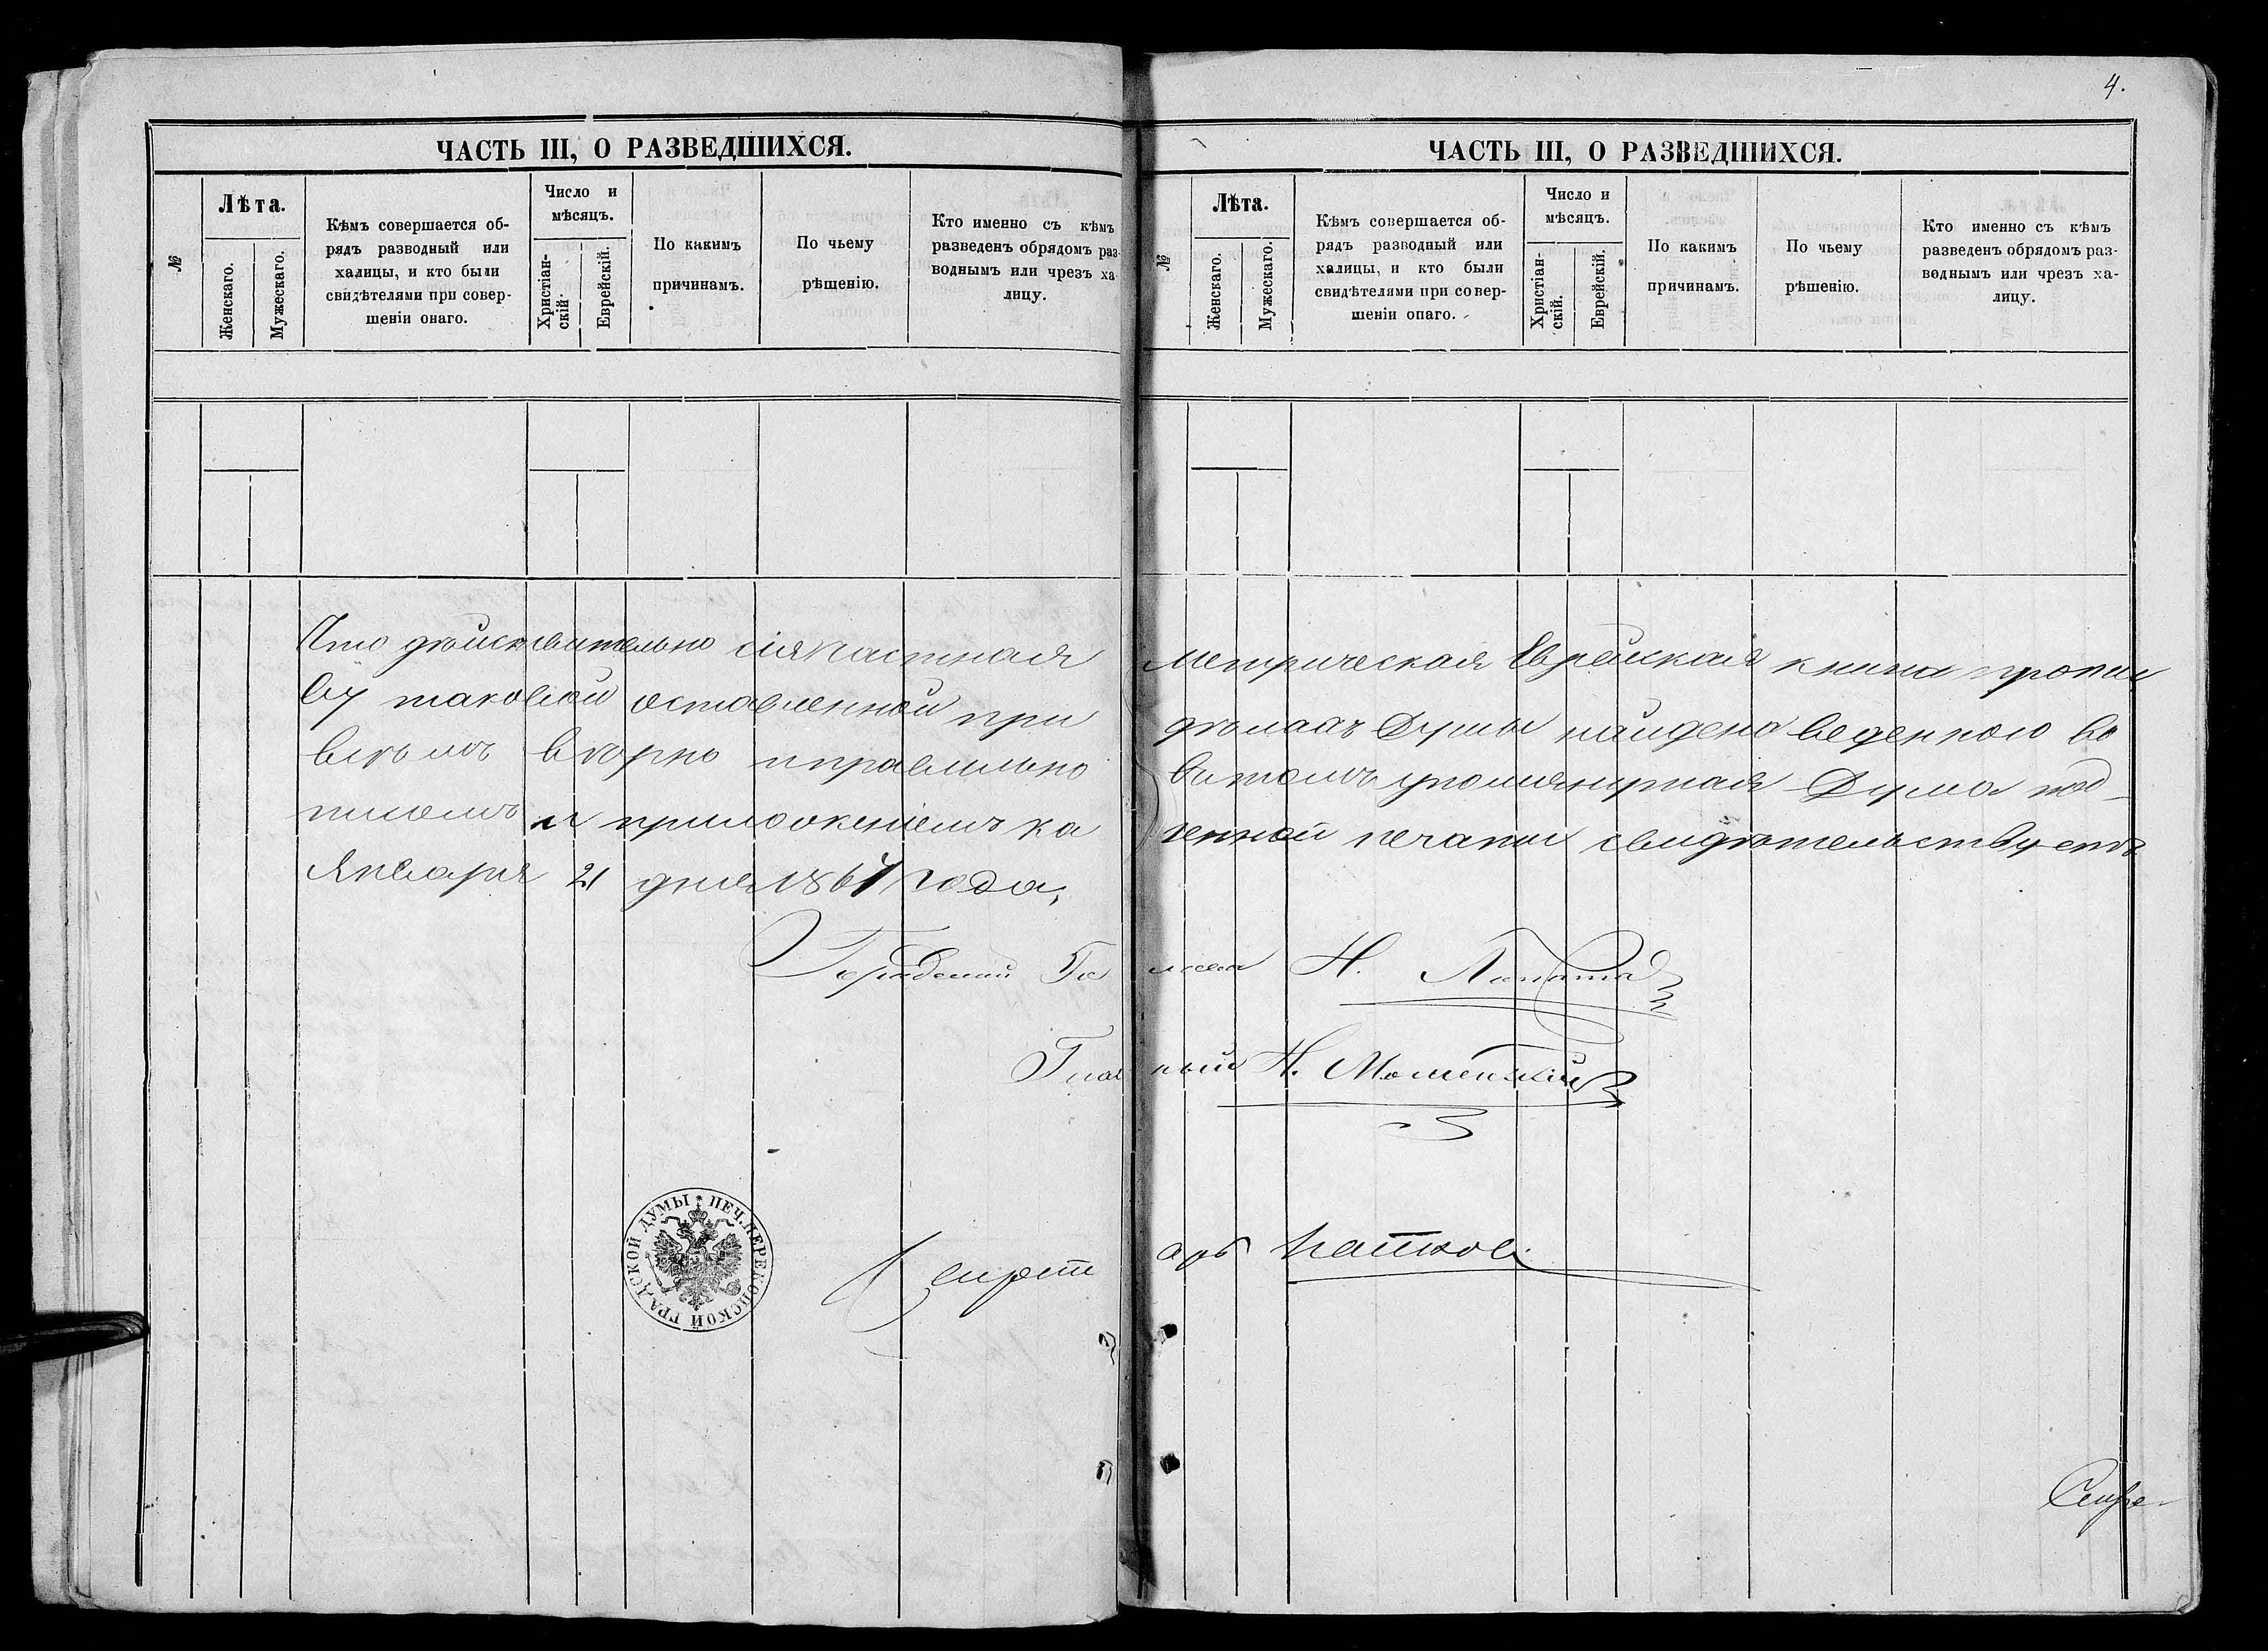 4.
ЧАСТЬ III, О РАЗВЕДШИХСЯ.
№
Лѣта.
Женскаго.
Мужескаго.
Кѣмъ совершается об-
рядъ разводный или
халицы, и кто были
свидѣтелями при совер-
шеніи онаго.
Число и
мѣсяцъ.
Христіан-
скій.
Еврейскій.
По какимъ
причинамъ.
По чьему
рѣшенію.
Кто именно съ кѣмъ
разведенъ обрядомъ раз-
воднымъ или чрезъ ха-
лицу.
ЧАСТЬ III, О РАЗВЕДШИХСЯ.
№
Лѣта.
Женскаго.
Мужескаго.
Кѣмъ совершается об-
рядъ разводный или
халицы, и кто были
свидѣтелями при совер-
шеніи онаго.
Число и
мѣсяцъ.
Христіан-
скій.
Еврейскій.
По какимъ
причинамъ.
По чьему
рѣшенію.
Кто именно съ кѣмъ
разведенъ обрядомъ раз-
воднымъ или чрезъ ха-
лицу.
Что дѣйствительно сія частная метрическая Еврейская книга противу
таковой оставленной при дѣлахъ Думы найдена веденною во
всѣмъ вѣрно и правильно въ томъ упомянутая Дума под-
писомъ и приложеніемъ казенной печати свидѣтельствуетъ
Января 21 дня 1864 года,
Городской Голова Н.
Гласный Н.
ПЕЧ. ПЕРЕКОПСКОЙ ГРАДСКОЙ ДУМЫ
Секретарь
Секре-